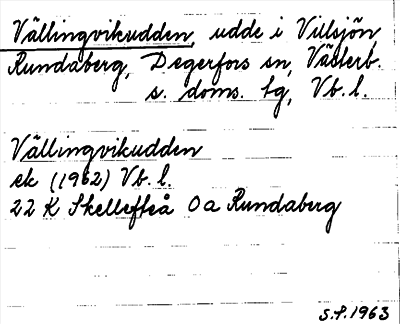 Vällingvikudden, udde i Villsjön
Rundaberg, Degerfors sn, Västerb.
s. doms. tg, Vb. l.
Vällingvikudden
ek (1962) Vb. l.
22 K Skellefteå 0a Rundaberg
S.P. 1963